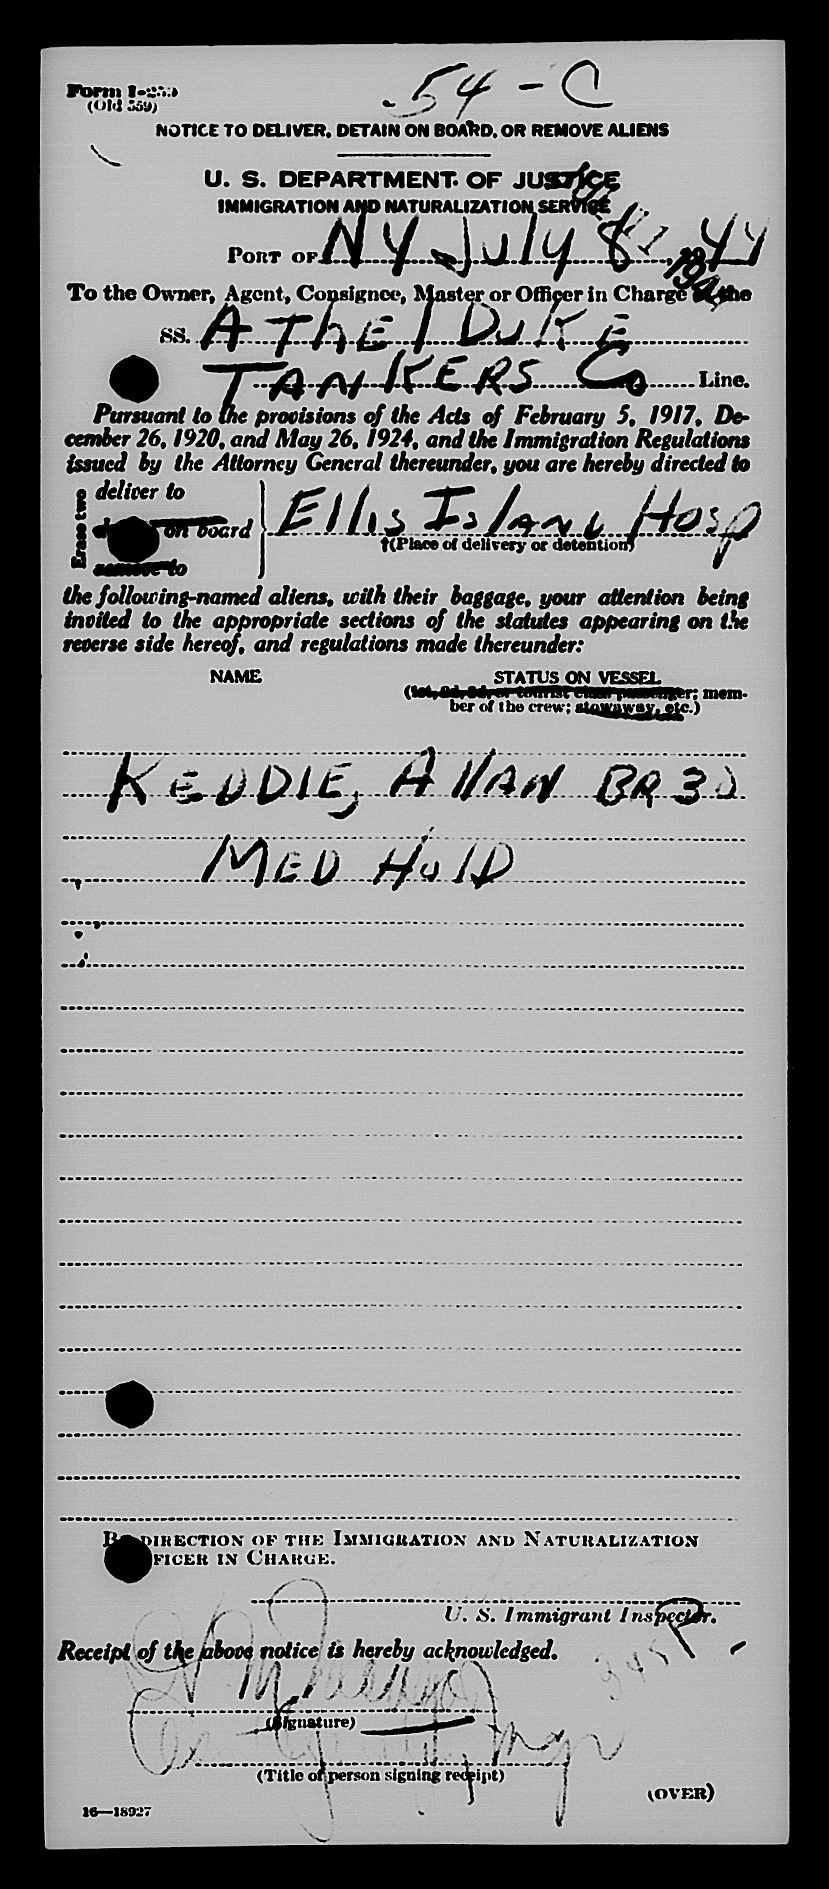 Form I-259
(Old 559)
54 - C
NOTICE TO DELIVER, DETAIN ON BOARD, OR REMOVE ALIENS
U. S. DEPARTMENT OF JUSTICE
IMMIGRATION AND NATURALIZATION SERVICE
PORT OF NY July 8, 1944
To the Owner, Agent, Consignee, Master or Officer in Charge of the
SS. AThEl DuKE
TANKERS Co Line.
Pursuant to the provisions of the Acts of February 5, 1917, De-
cember 26, 1920, and May 26, 1924, and the Immigration Regulations
issued by the Attorney General thereunder, you are hereby directed to
Erase two
deliver to
on board
remove to
Ellis Island Hosp
†(Place of delivery or detention)
the following-named aliens, with their baggage, your attention being
invited to the appropriate sections of the statutes appearing on the
reverse side hereof, and regulations made thereunder:
NAME STATUS ON VESSEL
(1st, 2d, 3d, or tourist class passenger; mem-
ber of the crew; stowaway, etc.)
KEDDIE, AllAN BR 30
MED HolD
BY DIRECTION OF THE IMMIGRATION AND NATURALIZATION
OFFICER IN CHARGE.
U. S. Immigrant Inspector.
Receipt of the above notice is hereby acknowledged.
345 P
(Signature)
Mgr
(Title of person signing receipt)
(OVER)
16—18927